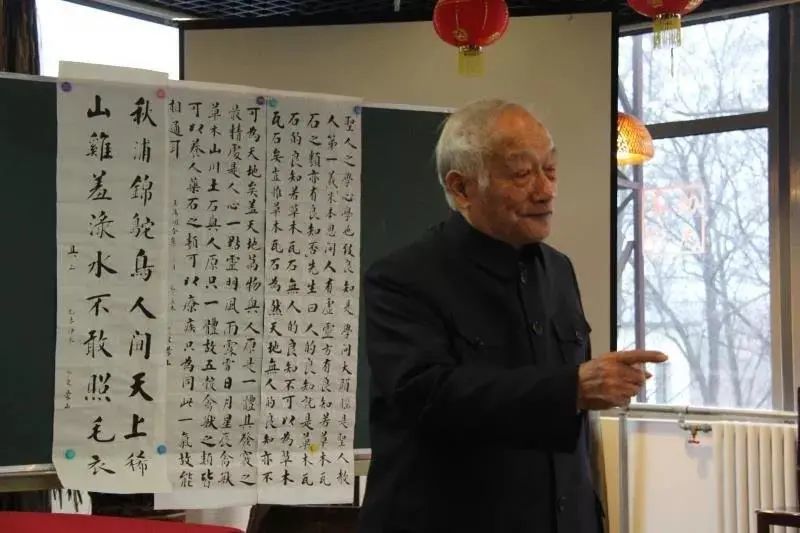 聖人之學心學也致良知是學問大頭腦是聖人教
人第一義朱本思問人有虛靈方有良知若草木瓦
石之類亦有良知否先生曰人的良知就是草木瓦
石的良知若草木瓦石無人的良知不可以為草木
瓦石矣豈惟草木瓦石為然天地無人的良知亦不
可為天地矣蓋天地萬物與人原是一體其發竅之
最精處是人心一點靈明風雨露雷日月星辰禽獸
草木山川土石與人原只一體故五穀禽獸之類皆
可以養人藥石之類可以療疾只為同此一氣故能
相通耳
秋浦錦鴕鳥人間天上稀
山雞羞淥水不敢照毛衣
其三